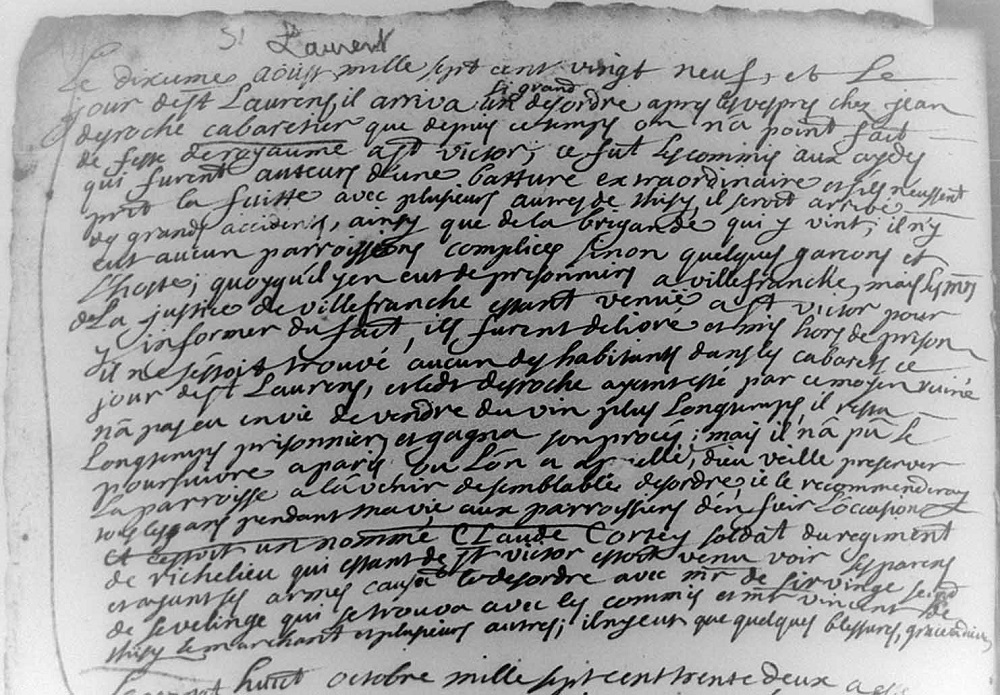 St Laurent
Le dixieme aoust mille sept cent vingt neuf, et Le
jour de st Laurens, il arriva un si grand desordre apres les vespres chez jean
desroche cabaretier que depuis ce temps on n'a point fait
de feste de royaume a st victor; ce fut les commis aux aydes
qui furent auteurs d'une batture extraordinaire et s'ils n'eussent
prit la fuitte avec plusieurs autres de thisy, il seroit arrivé
des grands accidens, ainsy que de la brigande qui y vint; il n'y
eut aucun parroissiens complices sinon quelques garcons et
L'hoste; quoyqu'il y en eut de prisonniers a villefranche, mais les mrs
de La justice de villefranche estant venue a st victor pour
y informer du fait, ils furent delivré et mis hors de prison
il ne s'estoit trouvé aucun des habitants dans les cabarets ce
jour de st Laurens, et ledt desroche ayant esté par ce moyen ruiné
n'a pas eu envie de vendre du vin plus Longtemps, il resta
Longtemps prisonnier et gagna son procés; mais il n'a pû le
poursuivre a paris ou L'on a dieu veille preserver
La parroisse a L'avenir de semblable desordre; ie le recommenderay
tous les ans pendant ma vie aux parroissiens d'en fuir L'occasion
et c'estoit un nommé CLaude Cortey soldat du regiment
de richelieu qui estant de st victor estoit venu voir ses parens
et ayant ses armes causa le desordre avec mr de sirvinge
de sevelinge qui se trouva avec les commis et mr vincent de
thisy le marchant et plusieurs autres; il n'y eut que quelques blessures, grace a dieu
huit octobre mille sept cent trente deux a